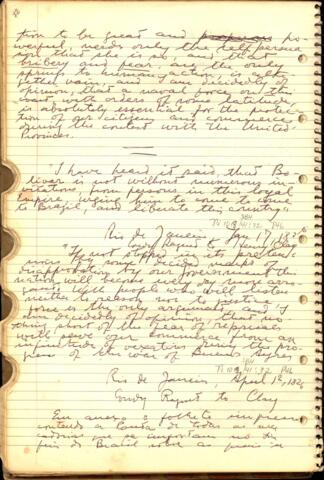 tion to be great and prosperous po-
werful, needs only the self persua-
sion that she is so, and that
bribery and fear, are the only
springs to human action, is alto-
gether vain, and I am decidedly of
opinion, that a naval force on this
coast, with orders of some latitude
is absolutely essential for the protec-
tion of our citizens and commerce
during the contest with the United
Provinces.
I have heard it said, that Bo-
livar is not without numerous in-
vitations, from persons in this loyal
Empire, urging him to come to come
to Brazil, and liberate this country"
Rio de Janeiro 1826
Condy Raguet to Henry Clay
"If not stopped in its preten-
sions, by some decided marks of
disapprobation by our government this
nation will become every day more arro-
gant. With people who will listen
neither to reason nor to justice,
force is the only argument, and I
am decidedly of opinion, that no-
thing short of the fear of reprisals
will save our commerce from an
infinitude of vexations during the pro-
gress of the war of Buenos Ayres
Rio de Janeiro, April 1826
Condy Raguet to Clay
Em anexo o folheto impresso
contendo a Causa de todas as